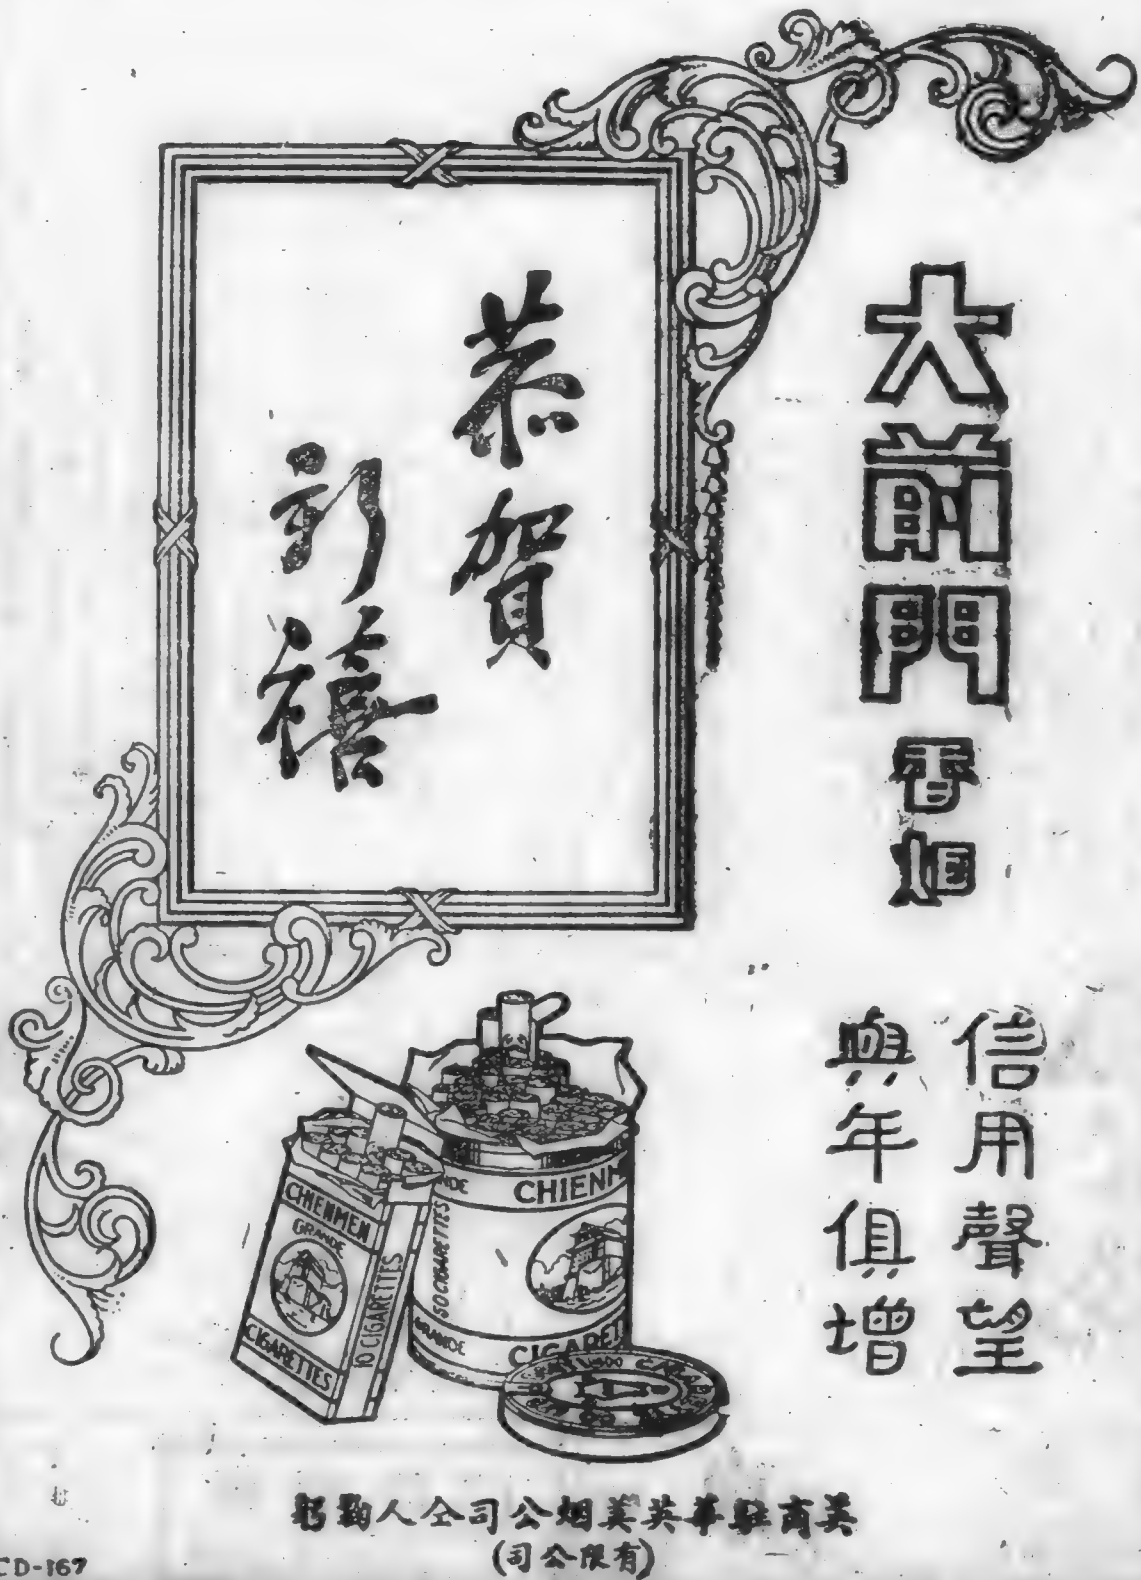 大前門
香烟
恭賀
新禧
信用聲望
與年俱增
CHIENMEN
GRANDE
CIGARETTES
10 CIGARETTES
CHIENM
50 CIGARETTES
GRANDE
CIGARET
英商駐華英美烟公司仝人鞠躬
(有限公司)
CD-167